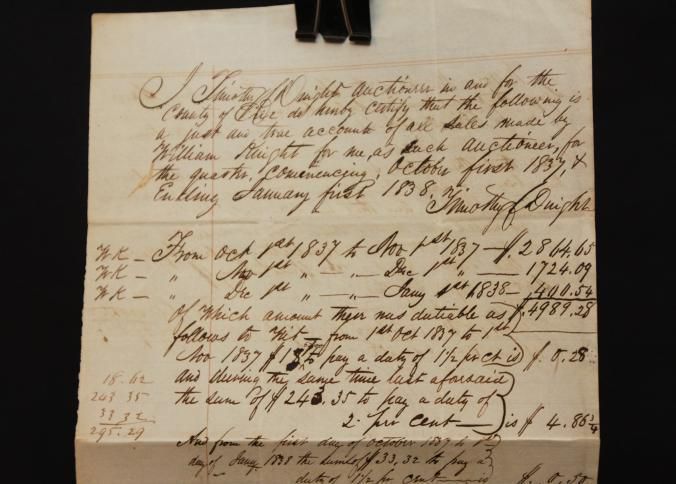 I Timothy Dwight auctioneer in and for the
County of Erie do hereby certify that the following is
a just and true account of all sales made by
William Knight for me, as such auctioneer, for
the quarter, comencing, October first 1837, &
Ending January first 1838.
Timothy Dwight
WK — From Oct 1st 1837 to Nov 1st 1837 — $. 2864.65
WK — " Nov 1st " — " — Dec 1st " — 1724.09
WK — " Dec 1st " — " — Jany 1st 1838 — 400.54
of Which amount their was dutiable as $. 4989.28
follows to Wit — from 1st Oct 1837 to 1st
Nov 1837 $ 18 pay a duty of 1½ pr ct is $. 0.28
and during the same time last aforsaid
the sum of $ 243.35 to pay a duty of
2. per cent — is $ 4.86¾
18.62
243 35
33 32
295.29
And from the first day of October 1837 to 1st
day of Jany 1838 the sum of $ 33,32 to pay a
duty of 1½ pr cent — is $. 0.50